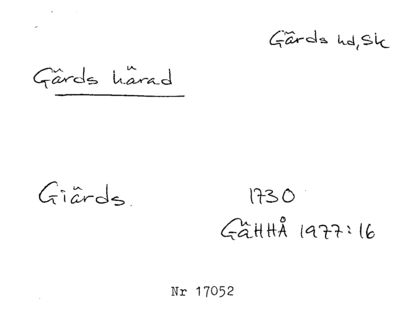 Gärds hd, Sk
Gärds härad
Giärds.
1730
GäHHÅ 1977:16
Nr 17052